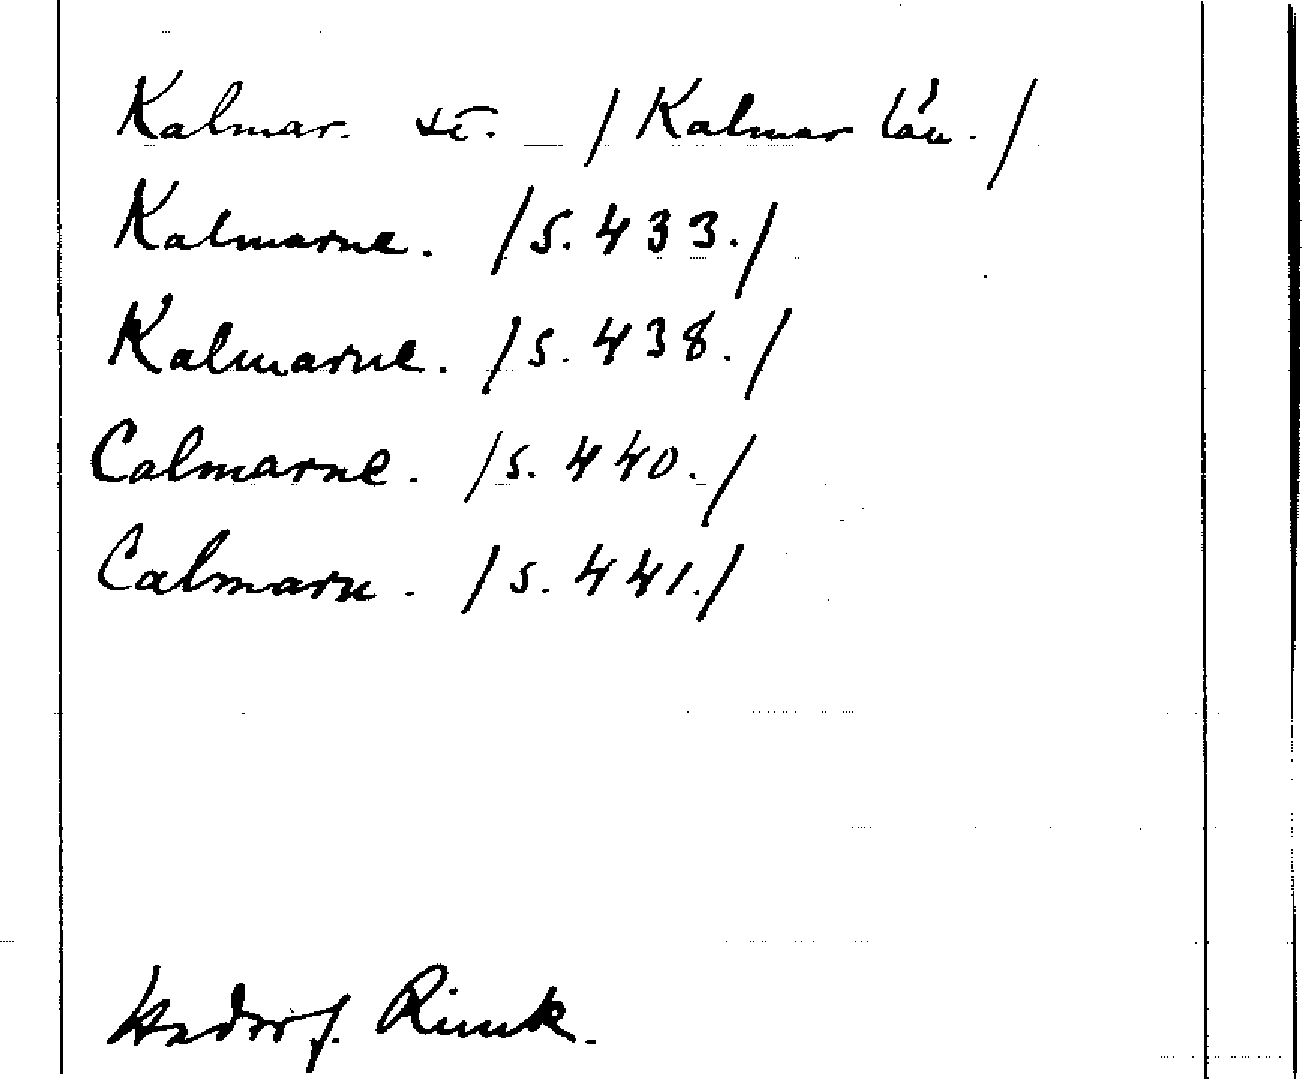 Kalmar. st. / Kalmar län. /
Kalmarne. /S. 433./
Kalmarne. /S. 438./
Calmarne. /S. 440./
Calmarn. /S. 441./